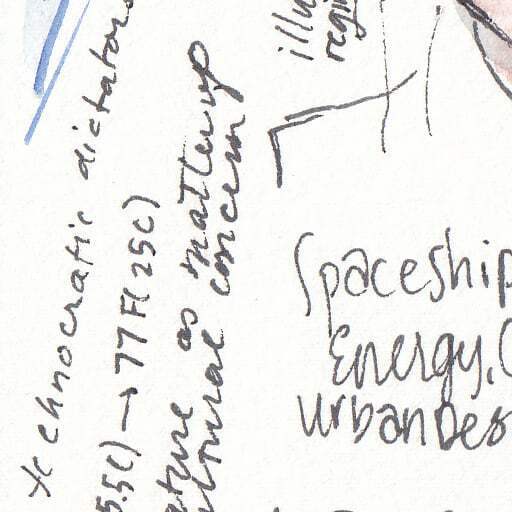 technocratic dictators
5.5C) → 77F(25C)
ature as matter up
ltural concern
illu
regi
Spaceship
Energy, (
Urban Des